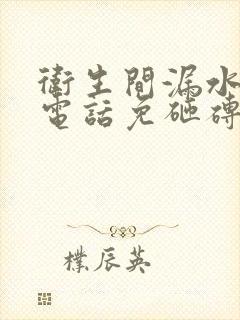 衛生間漏水
電話免砸磚
樸辰英